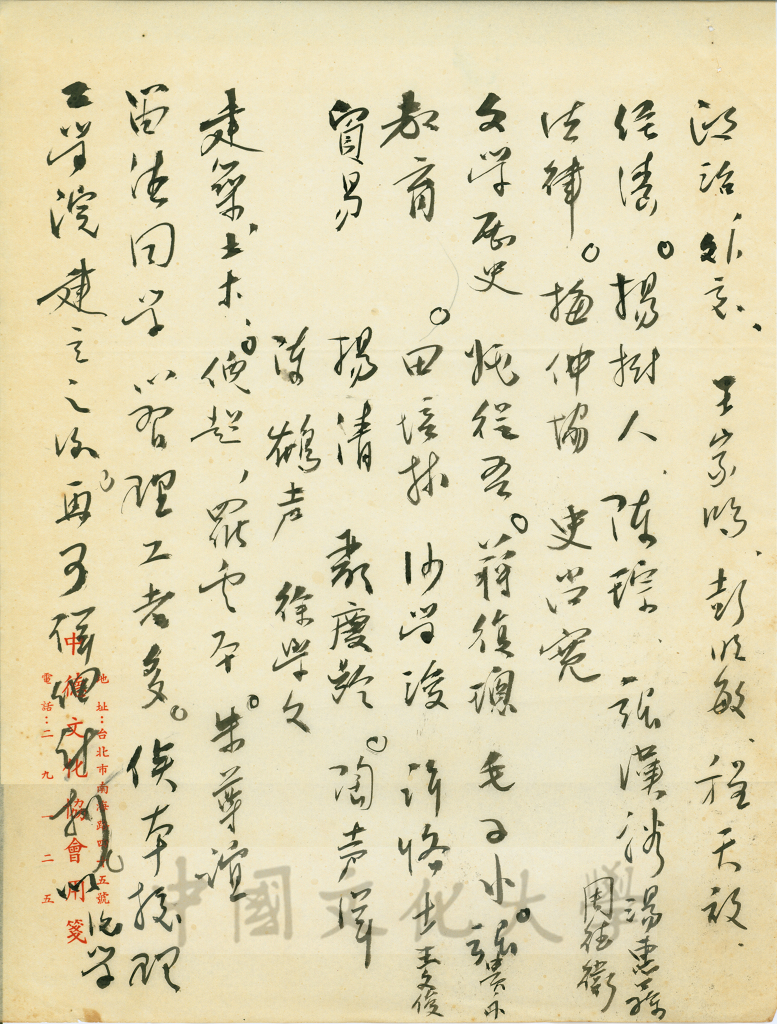 政治外交、王家鴻、彭明敏、程天放、
經濟。楊樹人、陳琮、張漢裕 湯惠蓀 周德偉
法律。梅仲協 史尚寬
文學歷史 姚從吾。蔣復璁 毛子水。張貴永
教育。田培林 沙學浚 許恪士 王文俊
貿易 楊清 慶齡。陶聲洋
陳鶴声 徐學文
建築土木、倪超、羅雲平。朱尊誼
留德同學以習理工者多。俟本校理
工學院建立之後再可詳細計劃
中德文化協會用箋
地址:台北市南海路四十五號
電話:二九一二五
中國文化大學